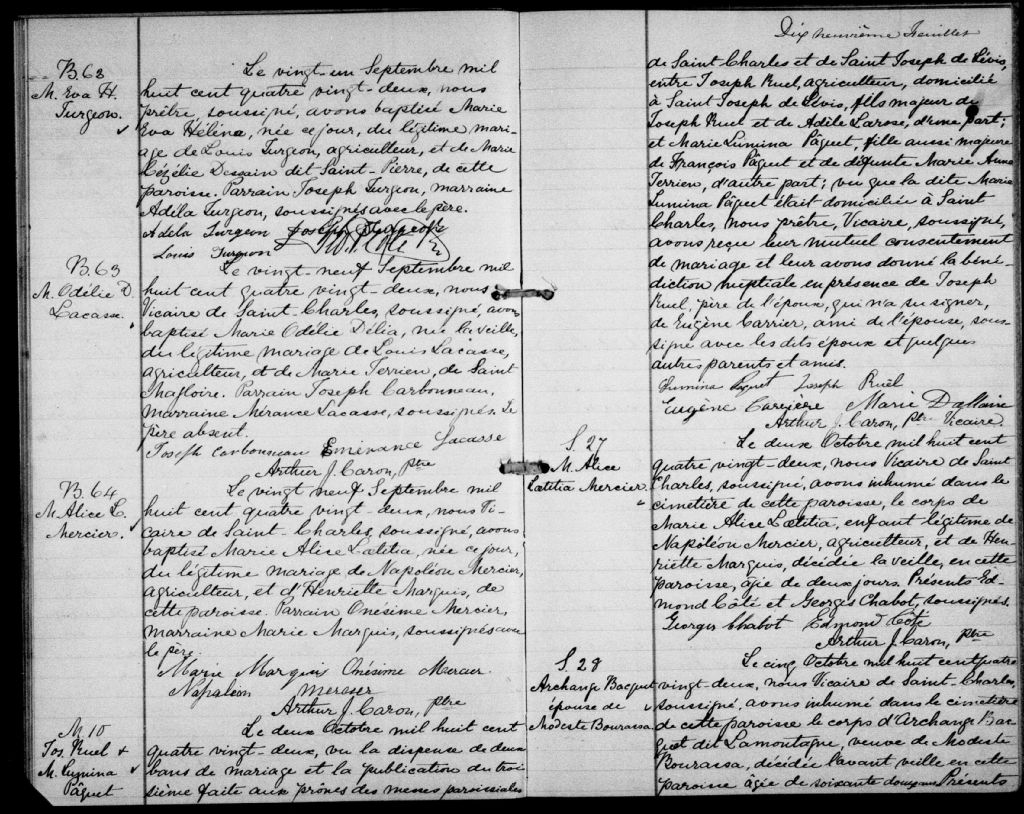 B.63
M. Eva H.
Turgeon.
Le vingt un Septembre mil
huit cent quatre vingt-deux, nous
prêtre, soussigné, avons baptisé Marie
Eva Hélèna, née ce jour, du légitime mari-
age de Louis Turgeon, agriculteur, et de Marie
Cézélie Dessain dit Saint-Pierre, de cette
paroisse. Parrain Joseph Turgeon, marraine
Adéla Turgeon, soussignés avec le père.
Adela Turgeon Joseph Turgeon
Louis Turgeon
B.63
M. Odélie D.
Lacasse.
Le vingt neuf Septembre mil
huit cent quatre vingt-deux, nous
Vicaire de Saint-Charles, soussigné, avons
baptisé Marie Odélie Délia, née la veille,
du légitime mariage de Louis Lacasse,
agriculteur, et de Marie Terrien, de Saint
Magloire. Parrain Joseph Carbonneau,
marraine Mérance Lacasse, soussignés. Le
père absent.
Joseph Carbonneau Emérance Lacasse
Arthur J. Caron, Ptre
B.64
M. Alice L.
Mercier.
Le vingt neuf Septembre mil
huit cent quatre vingt-deux, nous Vi-
caire de Saint-Charles, soussigné, avons
baptisé Marie Alice Laetitia, née ce jour,
du légitime mariage de Napoléon Mercier,
agriculteur, et d'Henriette Marquis, de
cette paroisse. Parrain Onésime Mercier,
marraine Marie Marquis, soussignés avec
le père.
Marie Marquis Onésime Mercier
Napoléon Mercier
Arthur J. Caron, Ptre
M 10
Jos. Ruel &
M. Lumina
Pâquet
Le deux Octobre mil huit cent
quatre vingt-deux, vu la dispense de deux
bans de mariage et la publication du troi-
sième faite aux prônes des messes paroissiales
Dix neuvième Feuillet
de Saint Charles et de Saint Joseph de Lévis,
entre Joseph Ruel, agriculteur, domicilié
à Saint Joseph de Lévis, fils majeur de
Joseph Ruel et de Adèle Larose, d'une part;
et Marie Lumina Pâquet, fille aussi majeure
de François Pâquet et de défunte Marie Anne
Terrien, d'autre part; vu que la dite Marie
Lumina Pâquet était domiciliée à Saint
Charles, nous prêtre, Vicaire, soussigné,
avons reçu leur mutuel consentement
de mariage et leur avons donné la béné-
diction nuptiale en présence de Joseph
Ruel, père de l'époux, qui n'a su signer,
de Eugène Carrier, ami de l'épouse, sous-
signé avec les dits époux et quelques
autres parents et amis.
Lumina Paquet Joseph Ruel
Eugène Carrière Marie Dallaire
Arthur J. Caron, Ptre Vicaire.
S. 27
M. Alice
Laetitia Mercier.
Le deux Octobre mil huit cent
quatre vingt-deux, nous Vicaire de Saint
Charles, soussigné, avons inhumé dans le
cimetière de cette paroisse, le corps de
Marie Alice Laetitia, enfant légitime de
Napoléon Mercier, agriculteur, et de Hen-
riette Marquis, décédée la veille, en cette
paroisse, agée de deux jours. Présents Ed-
mond Côté et Georges Chabot, soussignés.
Georges Chabot Edmond Côté
Arthur J. Caron, Ptre
S. 28
Archange Bacquet
épouse de
Modeste Bourassa
Le cinq Octobre mil huit cent quatre
vingt-deux, nous Vicaire de Saint-Charles,
soussigné, avons inhumé dans le cimetière
de cette paroisse le corps d'Archange Bac-
quet dit Lamontagne, veuve de Modeste
Bourassa, décédée l'avant veille en cette
paroisse âgée de soixante douze ans Présents